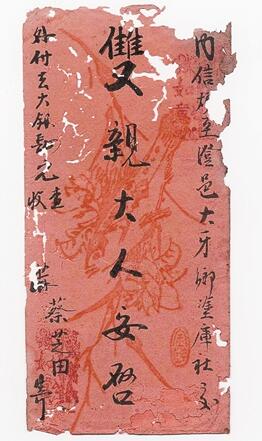 內信至澄邑大牙鄉塗庫社交
雙親大人安啓
外付去大銀元查收
蔡芝田